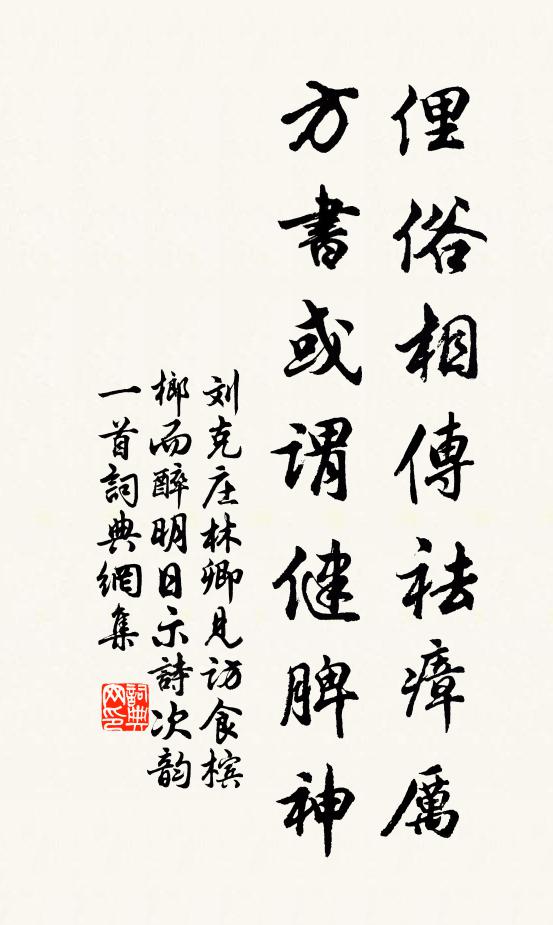 俚俗相傳祛瘴厲
方書或謂健脾神
刘克庄林卿見访食檳
榔而醉明日示詩次韵
一首詞典網集
詞典
网印